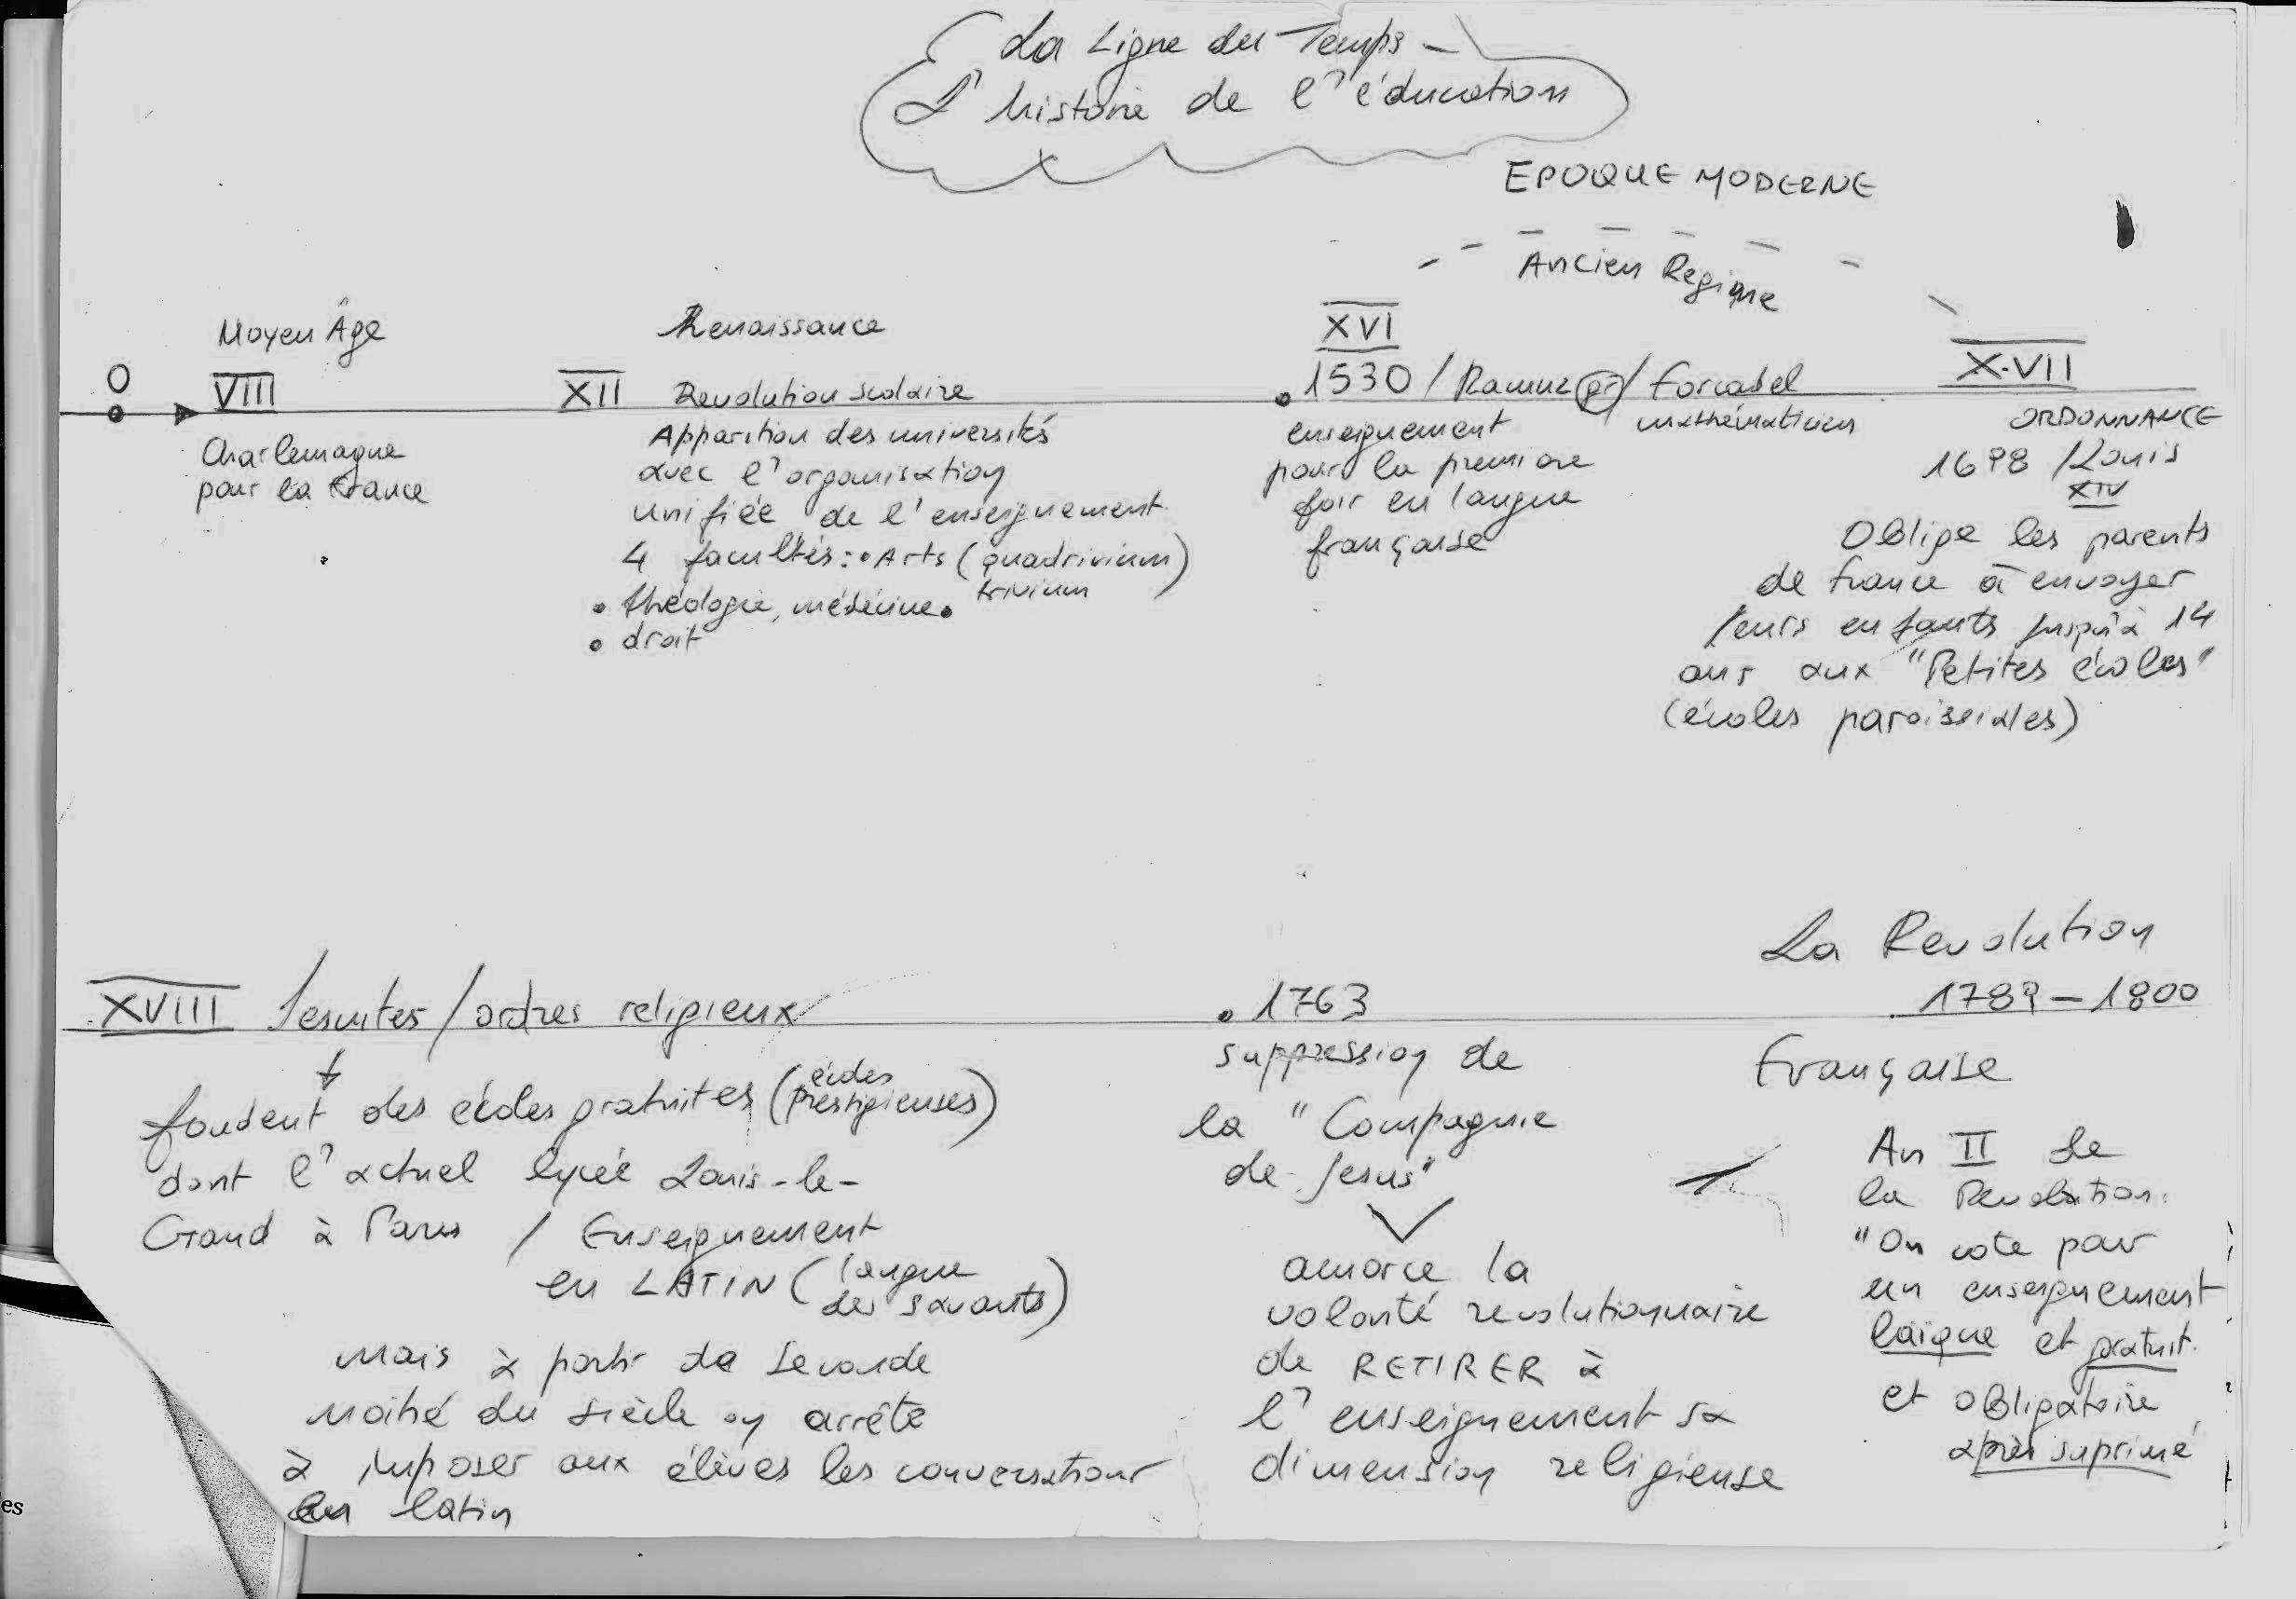 La Ligne du Temps -
L'histoire de l'éducation
EPOQUE MODERNE
Ancien Regime
Moyen Âge
O
VIII
Charlemagne
pour la France
Renaissance
XII Revolution scolaire
Apparition des universités
avec l'organisation
unifiée de l'enseignement
4 facultés: • Arts (quadrivium
trivium)
• théologie, médécine •
• droit
XVI
• 1530 / Ramus / Forcadel
mathématicien
enseignement
pour la premiere
foir en langue
française
XVII
ORDONNANCE
1698 / Louis
XIV
Oblige les parents
de France à envoyer
leurs enfants jusqu'à 14
ans aux "Petites écoles"
(écoles paroissiales)
XVIII Jesuites / ordres religieux
fondent des écoles gratuites (écoles
prestigieuses)
dont l'actuel lycée Louis-le-
Grand à Paris / Enseignement
en LATIN (langue
des savants)
mais à partir de seconde
moitié du siècle on arrête
à imposer aux élèves les conversations
en latin
• 1763
suppression de
la "Compagnie
de Jesus"
amorce la
volonté revolutionnaire
de RETIRER à
l'enseignement sa
dimension religieuse
La Revolution
1789 - 1800
Française
An II de
la Revolution:
"On vote pour
un enseignement
laïque et gratuit.
et obligatoire,
après suprimé
es